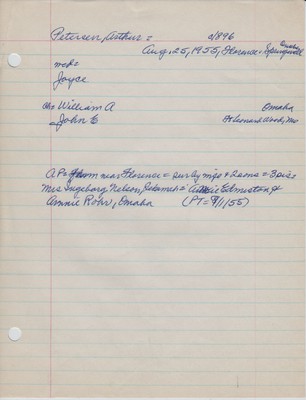 Petersen, Arthur = a/896
Aug. 25, 1955, Florence = Omaha Springwell
mc Joyce
ch= William A Omaha
= John E Ft Leonard Wood, Mo
A Pa farm near Florence = sur by m/o + 2 sons = 3 sis =
Mrs Ingeborg Nelson, &
Annie Rohr, Omaha (PT = 9/1/55)